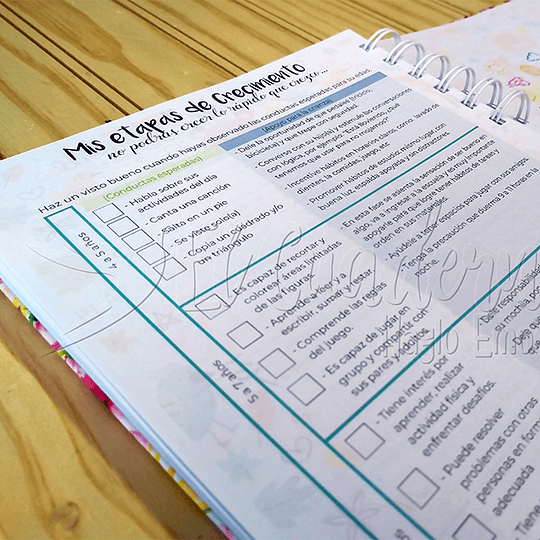 Mis etapas de Crecimiento
no podrás creer lo rápido que crezco...
Haz un visto bueno cuando hayas observado las conductas esperadas para su edad.
(Conductas esperadas)
(Apoyo para la crianza)
4 a 5 años
- Habla sobre sus
actividades del día
- Canta una canción
- Salta en un pie
- Se viste solo(a)
- Copia un cuadrado y/o
un triángulo
- Dele la oportunidad de que pedalee (triciclo,
bicicleta) y que trepe con seguridad.
- Converse con su hijo(a) y estimule las conversaciones
con lógica, por ejemplo, "Está lloviendo, ¿Qué
tenemos que usar para no mojarnos?
- Incentive hábitos en horarios claros, como, lavado de
dientes, la comida, juego, etc.
- Promover hábitos de estudio mismo lugar con
buena luz, útiles y un adulto acompañando.
5 a 7 años
- Es capaz de recortar y
colorear áreas limitadas
de las figuras
- Aprende a leer y a
escribir, sumar y restar.
- Comprende las reglas
del juego
- Es capaz de jugar en
grupo y compartir con
sus pares y adultos.
- En esta fase se asienta la sensación de ser bueno en
algo, va a ingresar a la escuela y es muy importante
apoyarle para que logre tener hábitos de lavado y
orden en sus materiales.
- Ayúdele a tener espacios para jugar con los amigos.
- Tenga la precaución que duerma 9 a 11 horas en la
noche.
- Tiene interés por
aprender, realizar
actividad física y
enfrentar desafíos.
- Puede resolver
problemas con otras
personas en forma
adecuada
- Dele responsabilidad
su mochila,
Dele
que
Mi Cuaderno
Hazlo